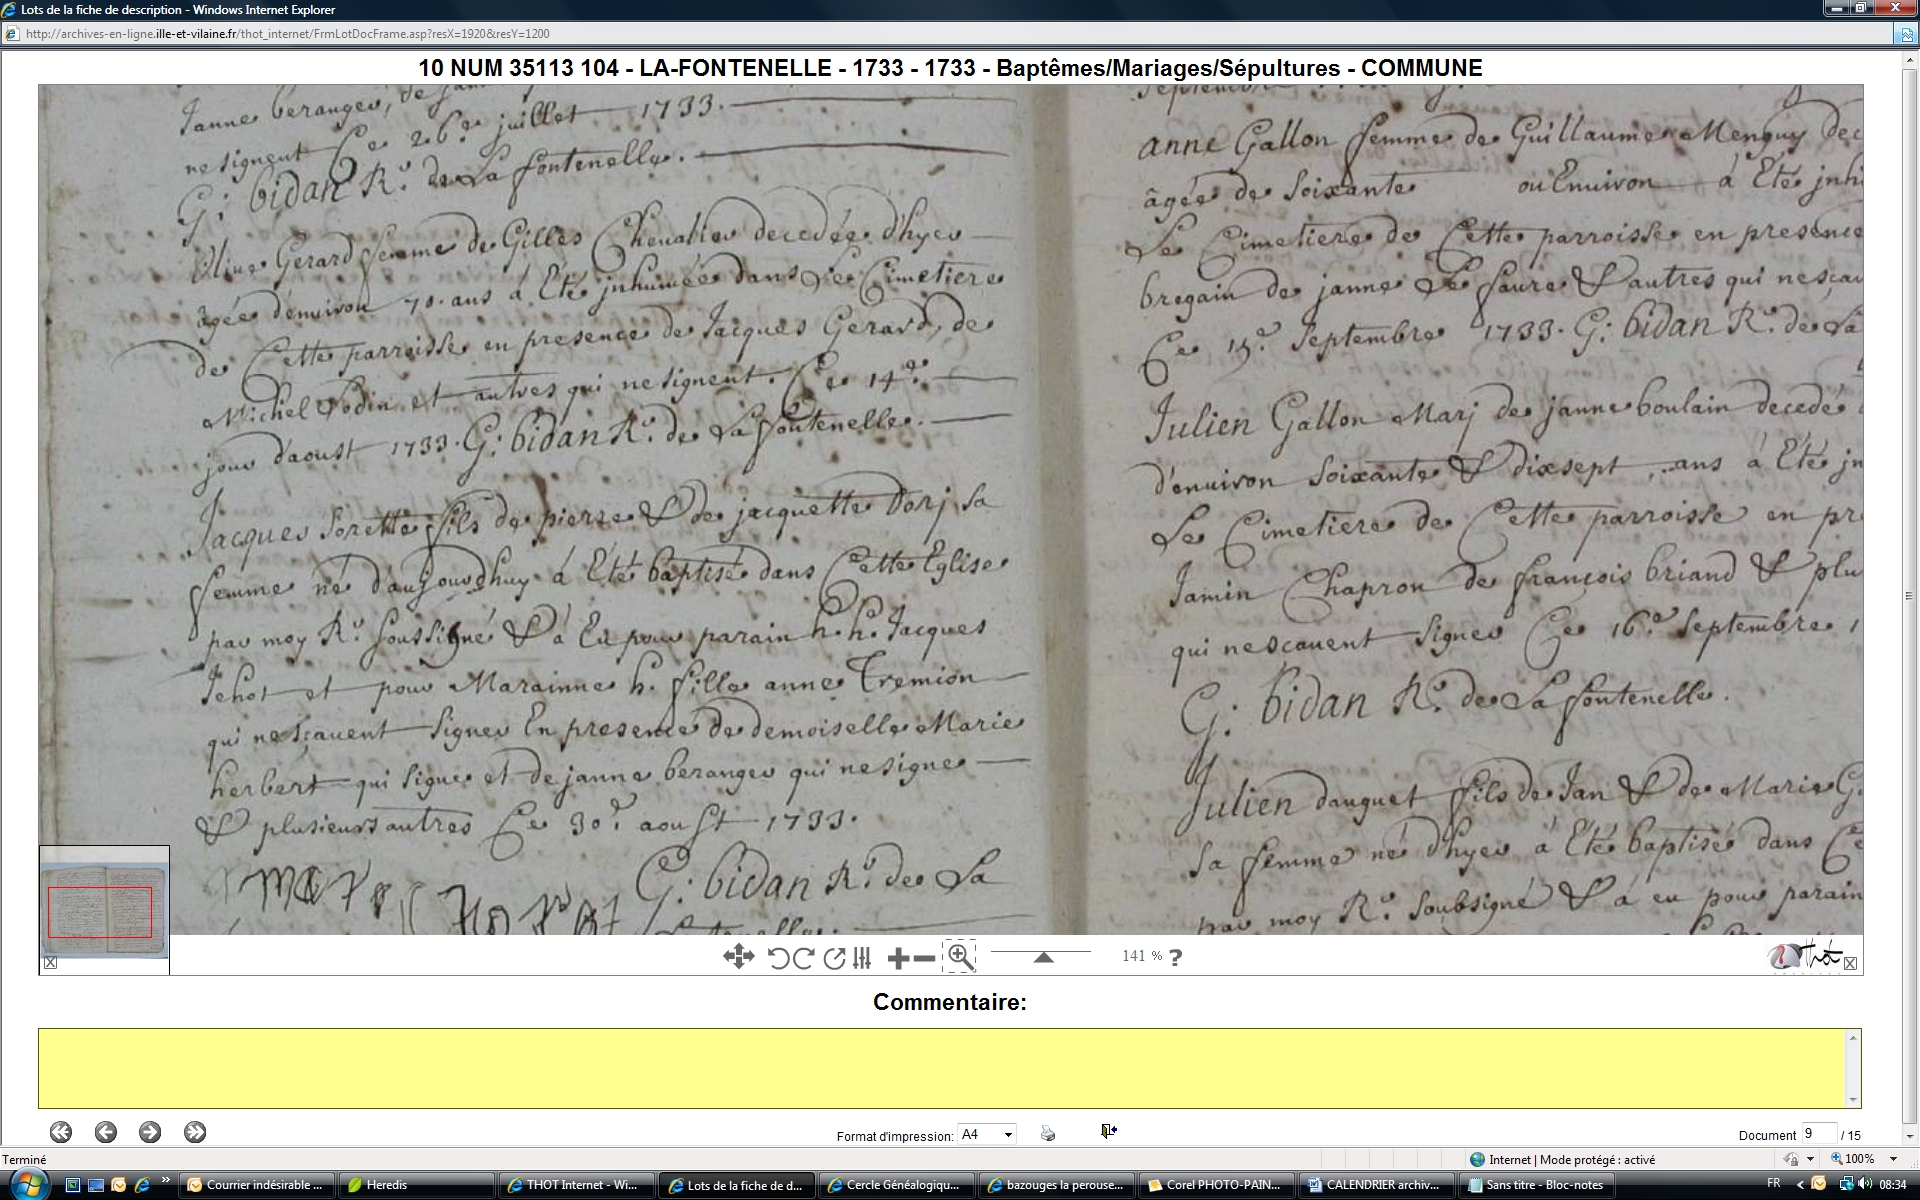 Lots de la fiche de description - Windows Internet Explorer
http://archives-en-ligne.ille-et-vilaine.fr/thot_internet/FrmLotDocFrame.asp?resX=1920&resY=1200
10 NUM 35113 104 - LA-FONTENELLE - 1733 - 1733 - Baptêmes/Mariages/Sépultures - COMMUNE
Janne beranger, de
ne signent Ce 26e juillet 1733.
G: bidan Rr de La fontenelle.
Gerard femme de Gilles Chevalier decedée d'hyer
âgée d'environ 70 ans à Eté jnhumée dans Le Cimetiere
de Cette parroisse en presence de Jacques Gerard, de
Michel Vodin et autres qui ne signent. Ce 14e
jour d'aoust 1733. G: bidan Rr de La fontenelle.
Jacques Sorette fils de pierre & de jacquette Dorj sa
femme né d'aujourdhuy à Eté baptisé dans Cette Eglise
par moy Rr soussigné & à Eu pour parain h. h. Jacques
Jehot et pour Marainne h. fille anne Tremion
qui ne sçavent signer En presence de demoiselle Marie
herbert qui signe et de janne beranger qui ne signe
& plusieurs autres Ce 30e aoust 1733.
G: bidan Rr de La
fontenelle.
anne Gallon femme de Guillaume Menguy dec
âgée de soixante ou Environ à Eté jnh
Le Cimetiere de Cette parroisse en presence
bregain de janne Le faure & autres qui ne sçav
Ce 15e Septembre 1733. G: bidan Rr de La
Julien Gallon Marj de janne boulain decedé
d'environ soixante & dixsept ans à Eté jn
Le Cimetiere de Cette parroisse en pre
Jamin Chapron de françois briand & plu
qui ne scavent signer Ce 16e Septembre 1
G: bidan Rr de La fontenelle.
Julien dauguet fils de Jan & de Marie G.
sa femme né d'hyer à Eté baptisé dans Ce
par moy Rr soubsigné & à eu pour parain
141 % ?
Thot
Commentaire:
Format d'impression: A4
Document 9 / 15
Terminé
Internet | Mode protégé : activé
100%
Courrier indésirable ...
Heredis
THOT Internet - Wi...
Lots de la fiche de d...
Cercle Généalogiqu...
bazouges la perouse...
Corel PHOTO-PAIN...
CALENDRIER archiv...
Sans titre - Bloc-notes
FR
08:34